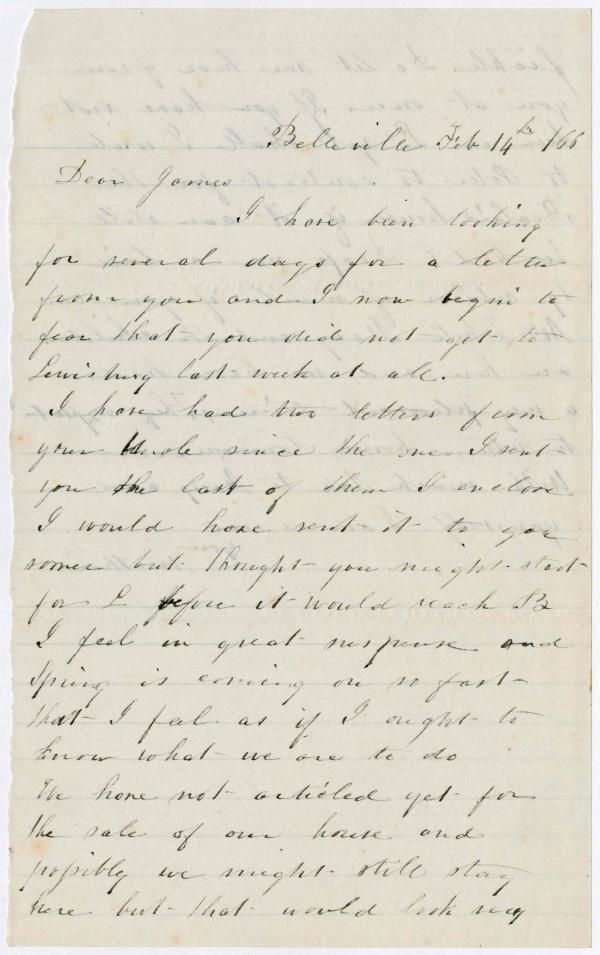 Belleville Feb 14th /66
Dear James
I have been looking
for several days for a letter
from you and I now begin to
fear that you did not get to
Lewisburg last week at all.
I have had two letters from
your Uncle since the one I sent
you the last of them I enclose
I would have sent it to you
sooner but thought you might start
for L before it would reach
I feel in great suspense and
Spring is coming on so fast
that I feel as if I ought to
know what we are to do
We have not articled yet for
the sale of our house and
possibly we might still stay
here but that would look very